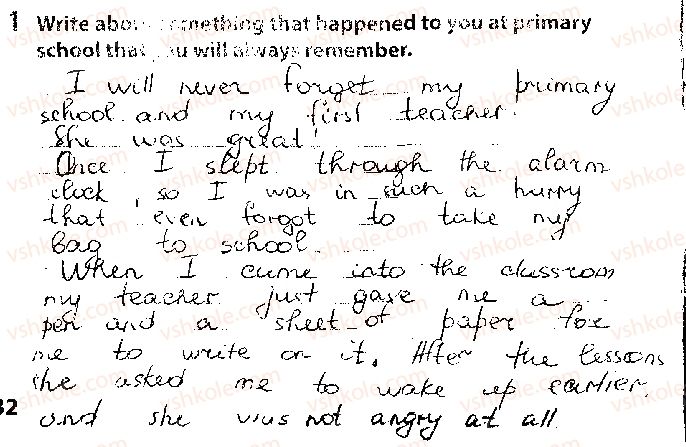 1 Write about something that happened to you at primary
school that you will always remember.
I will never forget my primary
school and my first teacher.
She was great!
Once I slept through the alarm
clock, so I was in such a hurry
that even forgot to take my
Bag to school.
When I came into the classroom
my teacher just gave me a
pen and a sheet of paper for
me to write on it. After the lessons
she asked me to wake up earlier
and she was not angry at all
32